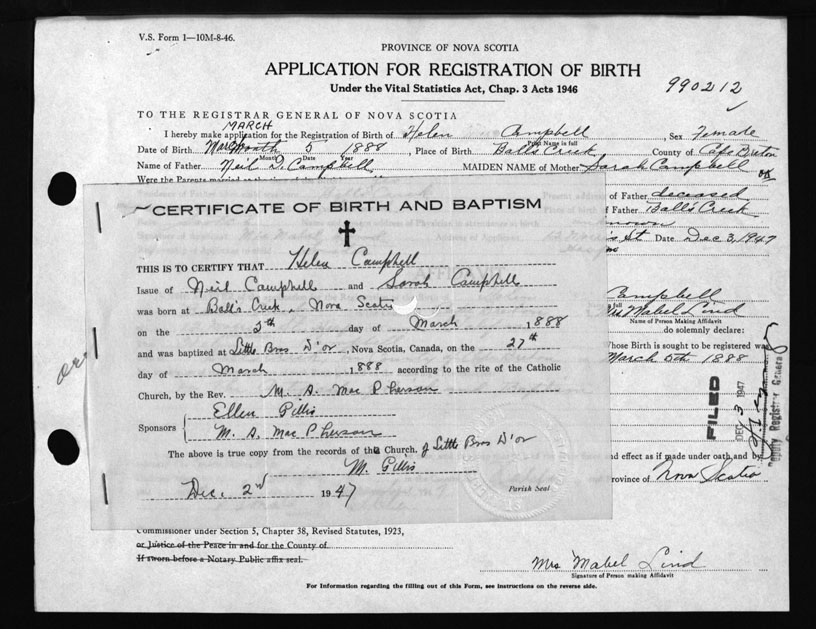 V.S. Form 1—10M-8-46.
PROVINCE OF NOVA SCOTIA
APPLICATION FOR REGISTRATION OF BIRTH
Under the Vital Statistics Act, Chap. 3 Acts 1946
990212
TO THE REGISTRAR GENERAL OF NOVA SCOTIA
MARCH
I hereby make application for the Registration of Birth of Helen Campbell Sex Female
Print Name in full
Date of Birth March 5 1888, Place of Birth Balls Creek County of Cape Breton
Month Date Year
Name of Father Neil D. Campbell MAIDEN NAME of Mother Sarah Campbell
Were the Parents married
of Father deceased
Father Ball's Creek
St Date Dec 3, 1947
CERTIFICATE OF BIRTH AND BAPTISM
THIS IS TO CERTIFY THAT Helen Campbell
Issue of Neil Campbell and Sarah Campbell
was born at Ball's Creek, Nova Scotia
on the 5th day of March 1888
and was baptized at Little Bras D'or, Nova Scotia, Canada, on the 27th
day of March 1888 according to the rite of the Catholic
Church, by the Rev. M. A. MacPherson
Sponsors { Ellen Gillis
M. A. MacPherson
The above is true copy from the records of the Church. of Little Bras D'or
M. Gillis
Dec. 2nd 1947 Parish Seal
Campbell
Mrs Mabel Lind
Name of Person Making Affidavit
do solemnly declare:
Whose Birth is sought to be registered was
March 5th 1888
FILED
DEC 3 1947
Deputy Registrar General
and effect as if made under oath and by
province of Nova Scotia
Commissioner under Section 5, Chapter 38, Revised Statutes, 1923,
or Justice of the Peace in and for the County of
If sworn before a Notary Public affix seal.
Mrs Mabel Lind
Signature of Person making Affidavit
For Information regarding the filling out of this Form, see instructions on the reverse side.